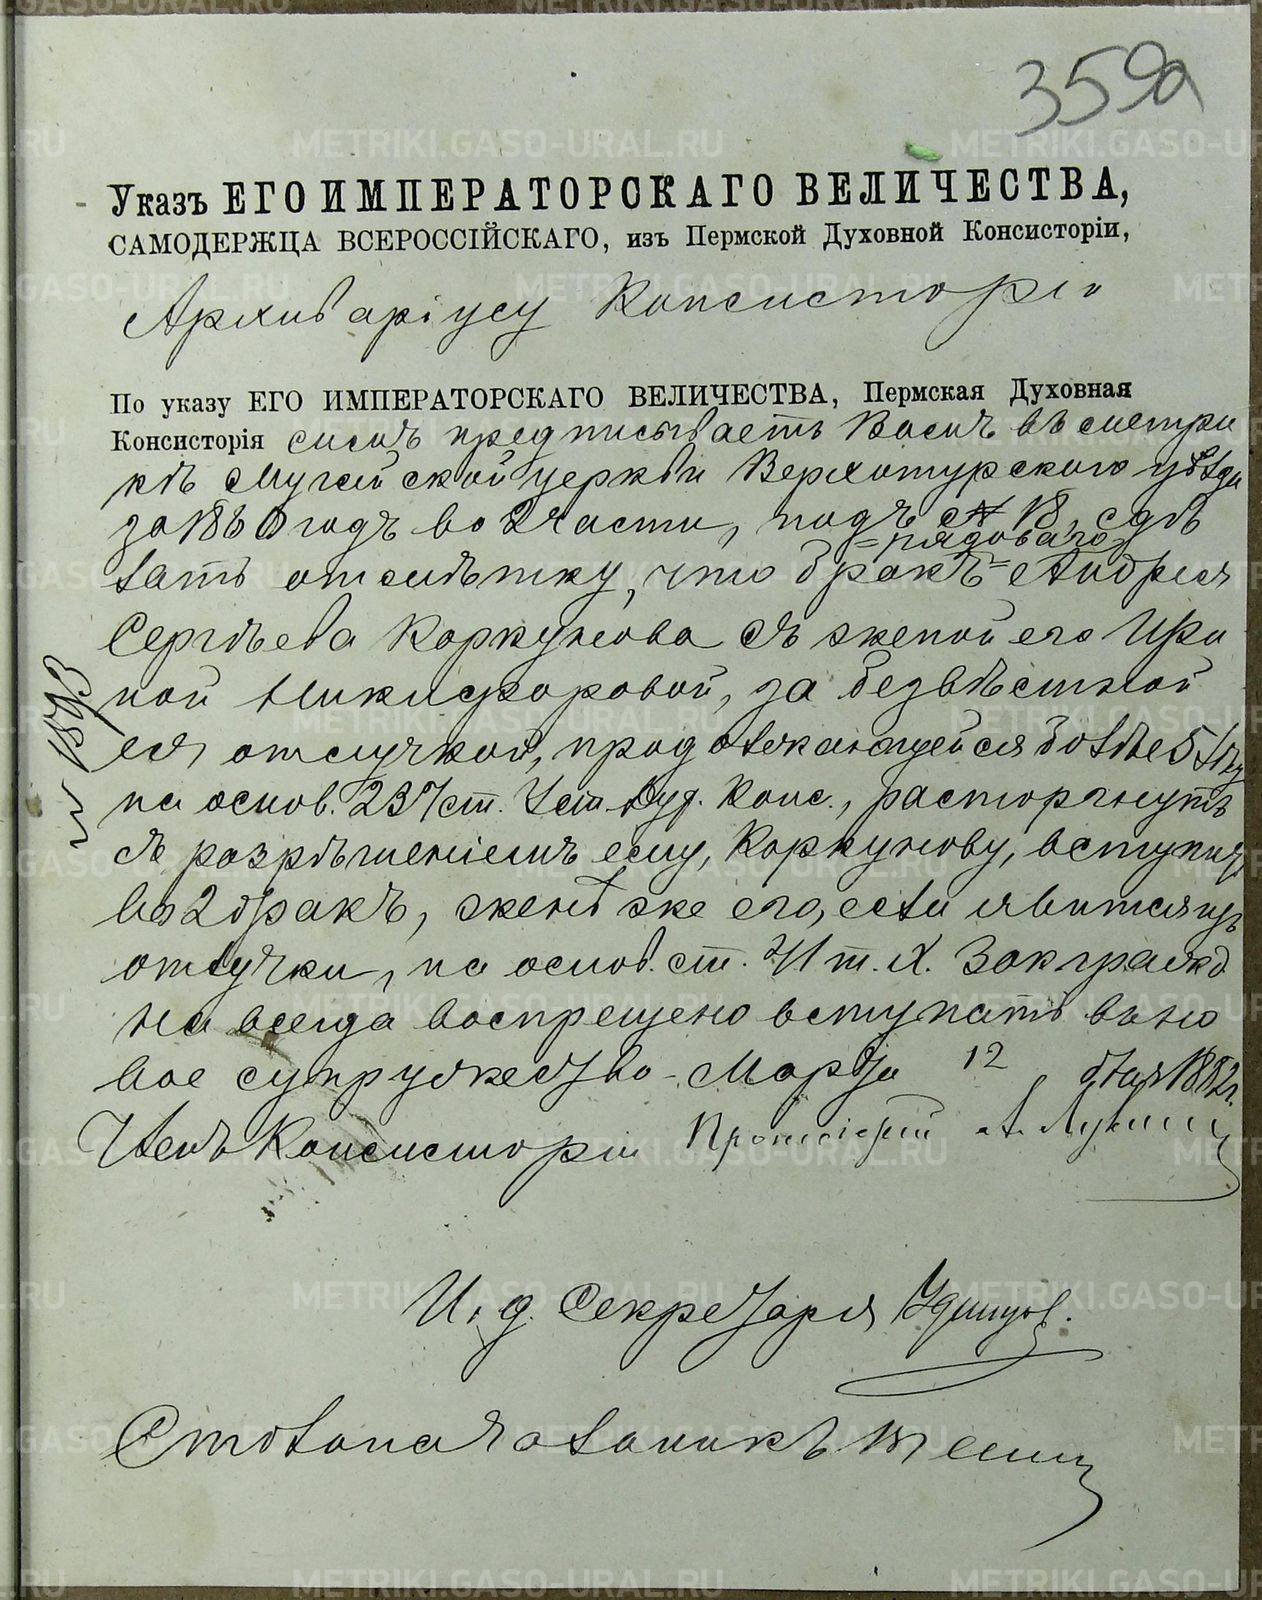 359а
Указъ ЕГО ИМПЕРАТОРСКАГО ВЕЛИЧЕСТВА,
САМОДЕРЖЦА ВСЕРОССІЙСКАГО, изъ Пермской Духовной Консисторіи,
Архиваріусу Консисторіи
По указу ЕГО ИМПЕРАТОРСКАГО ВЕЛИЧЕСТВА, Пермская Духовная
Консисторія симъ предписываетъ Вамъ въ метри
кѣ Мугайской церкви Верхотурскаго уѣзда
за 1860 годъ во 2 части, подъ № 18, сдѣ
=рядоваго=
лать отмѣтку, что бракъ = Андрея
Сергѣева Коркунова съ женой его Ири
ной Никифоровой, за безвѣстной
ея отлучкой, продолжающейся болѣе 5 лѣтъ
на основ. 237 ст. Уст. Дух. Конс., расторгнутъ
съ разрѣшеніемъ ему, Коркунову, вступить
во 2 бракъ, женѣ же его, если явится изъ
отлучки, на основ. ст. 41 т. X. Зак. гражд
на всегда воспрещено вступать въ но
вое супружество. Марта 12 дня 1882 г.
Членъ Консисторіи Протоіерей А. Лукин
И. д. Секретаря Удинцов.
Столоначальникъ
№ 1893
METRIKI.GASO-URAL.RU